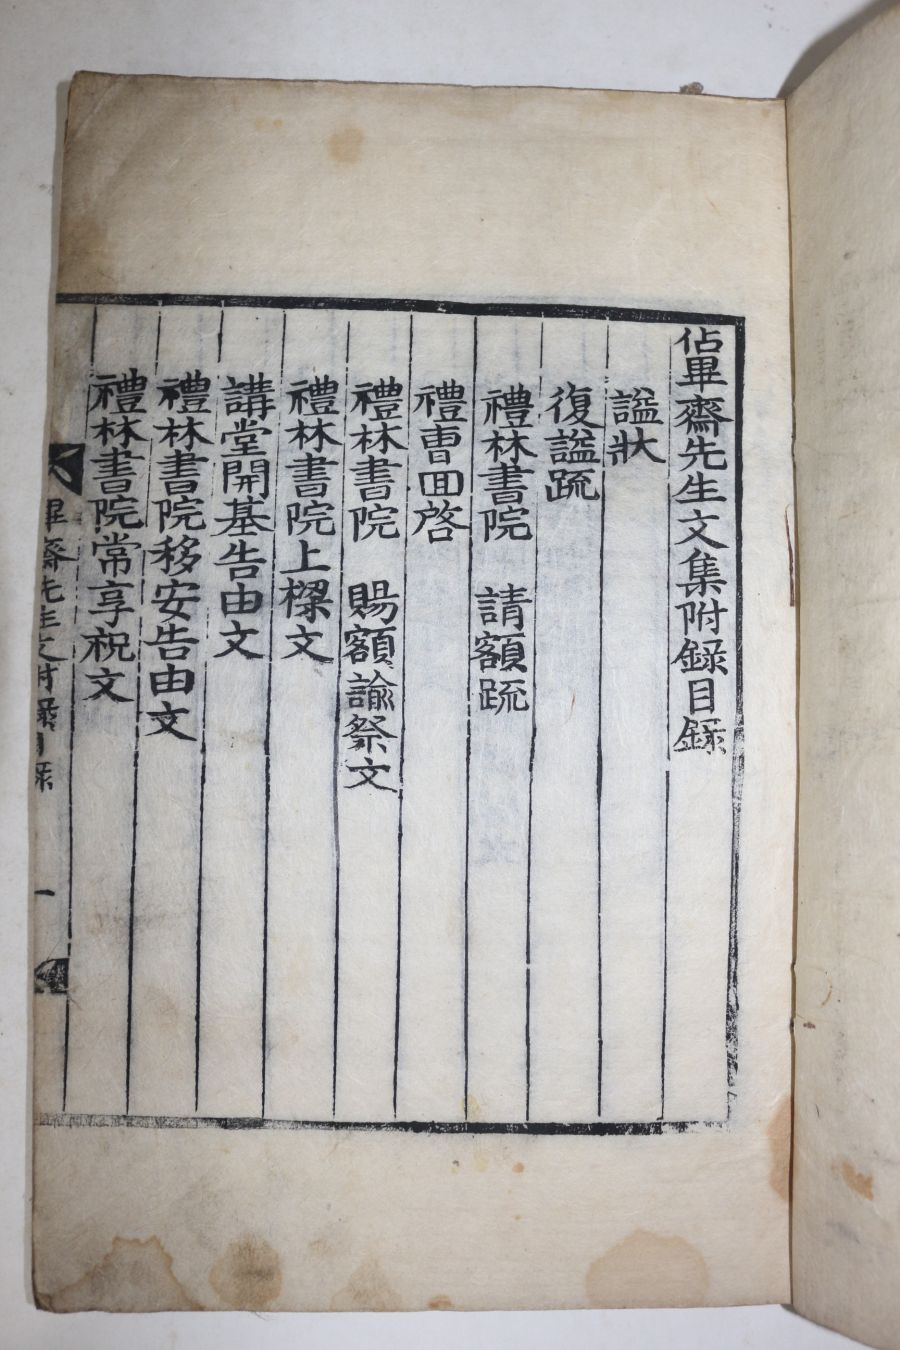 佔畢齋先生文集附録目録
謚狀
復謚䟽
禮林書院 請額䟽
禮曹回啓
禮林書院 賜額諭祭文
禮林書院上樑文
講堂開基告由文
禮林書院移安告由文
禮林書院常享祝文
畢齋先生文附録目録 一